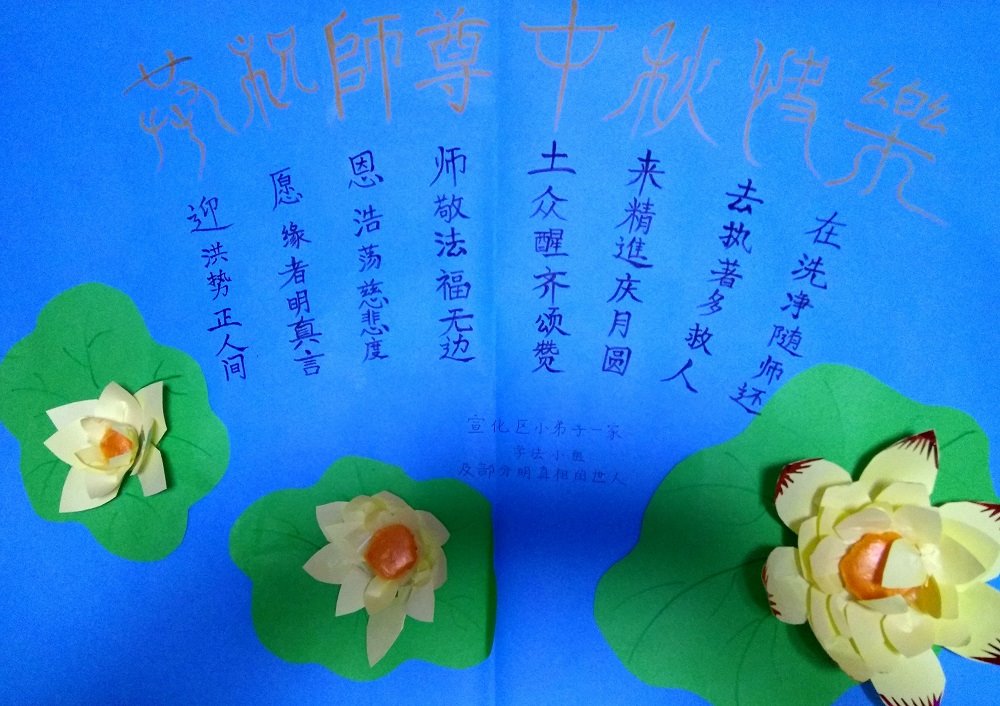 恭祝師尊中秋快樂
迎洪势正人间
愿缘者明真言
恩浩荡慈悲度
师敬法福无边
土众醒齐颂赞
来精進庆月圆
去执著多救人
在洗净随师还
宣化区小弟子一家
学法小鱼
及部分明真相的世人